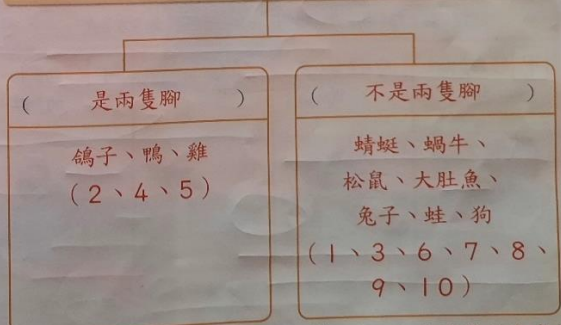 (是兩隻腳)
鴿子、鴨、雞
(2、4、5)
(不是兩隻腳)
蜻蜓、蝸牛、
松鼠、大肚魚、
兔子、蛙、狗
(1、3、6、7、8、
9、10)